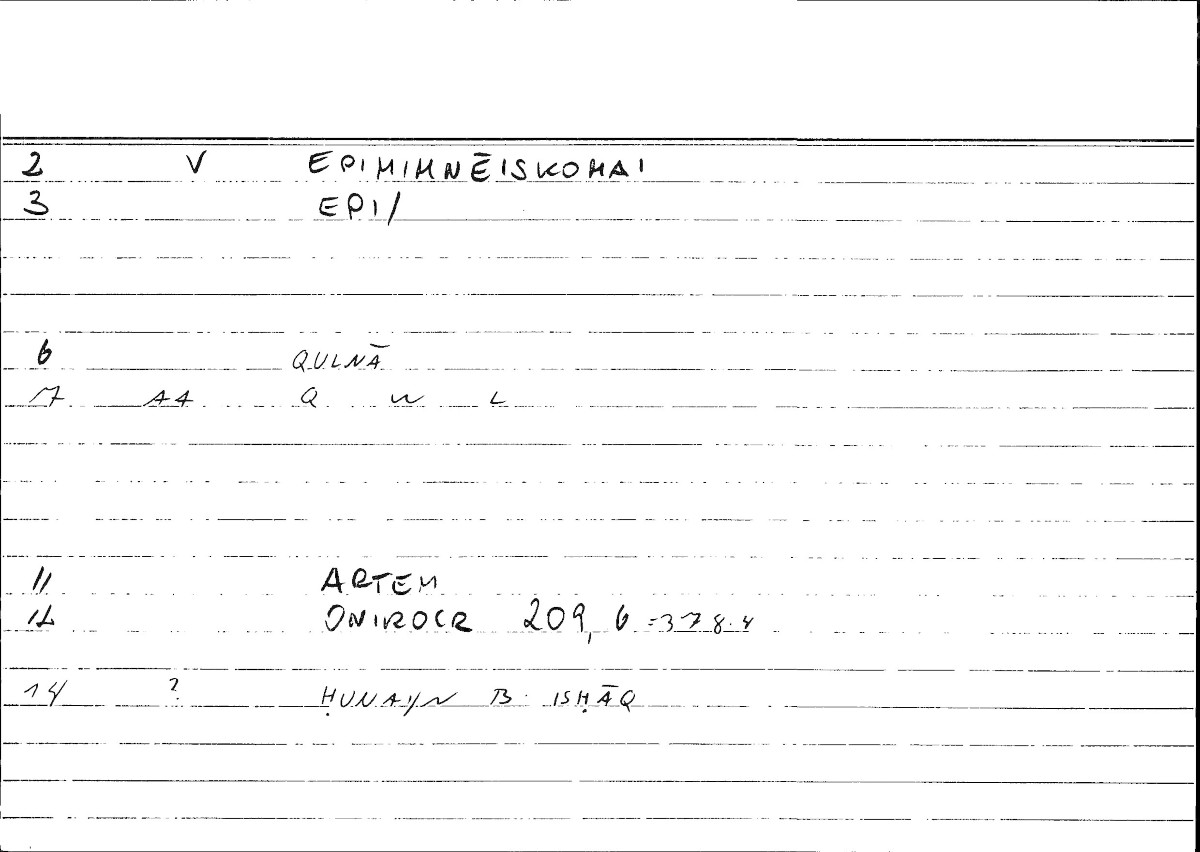 2 V EPIMIMNĒISKOMAI
3 EPI/
6 QULNĀ
17 A4 Q W L
11 ARTEM
12 ONIROCR 209, 6 = 378.4
14 ? ḤUNAYN B. ISḤĀQ